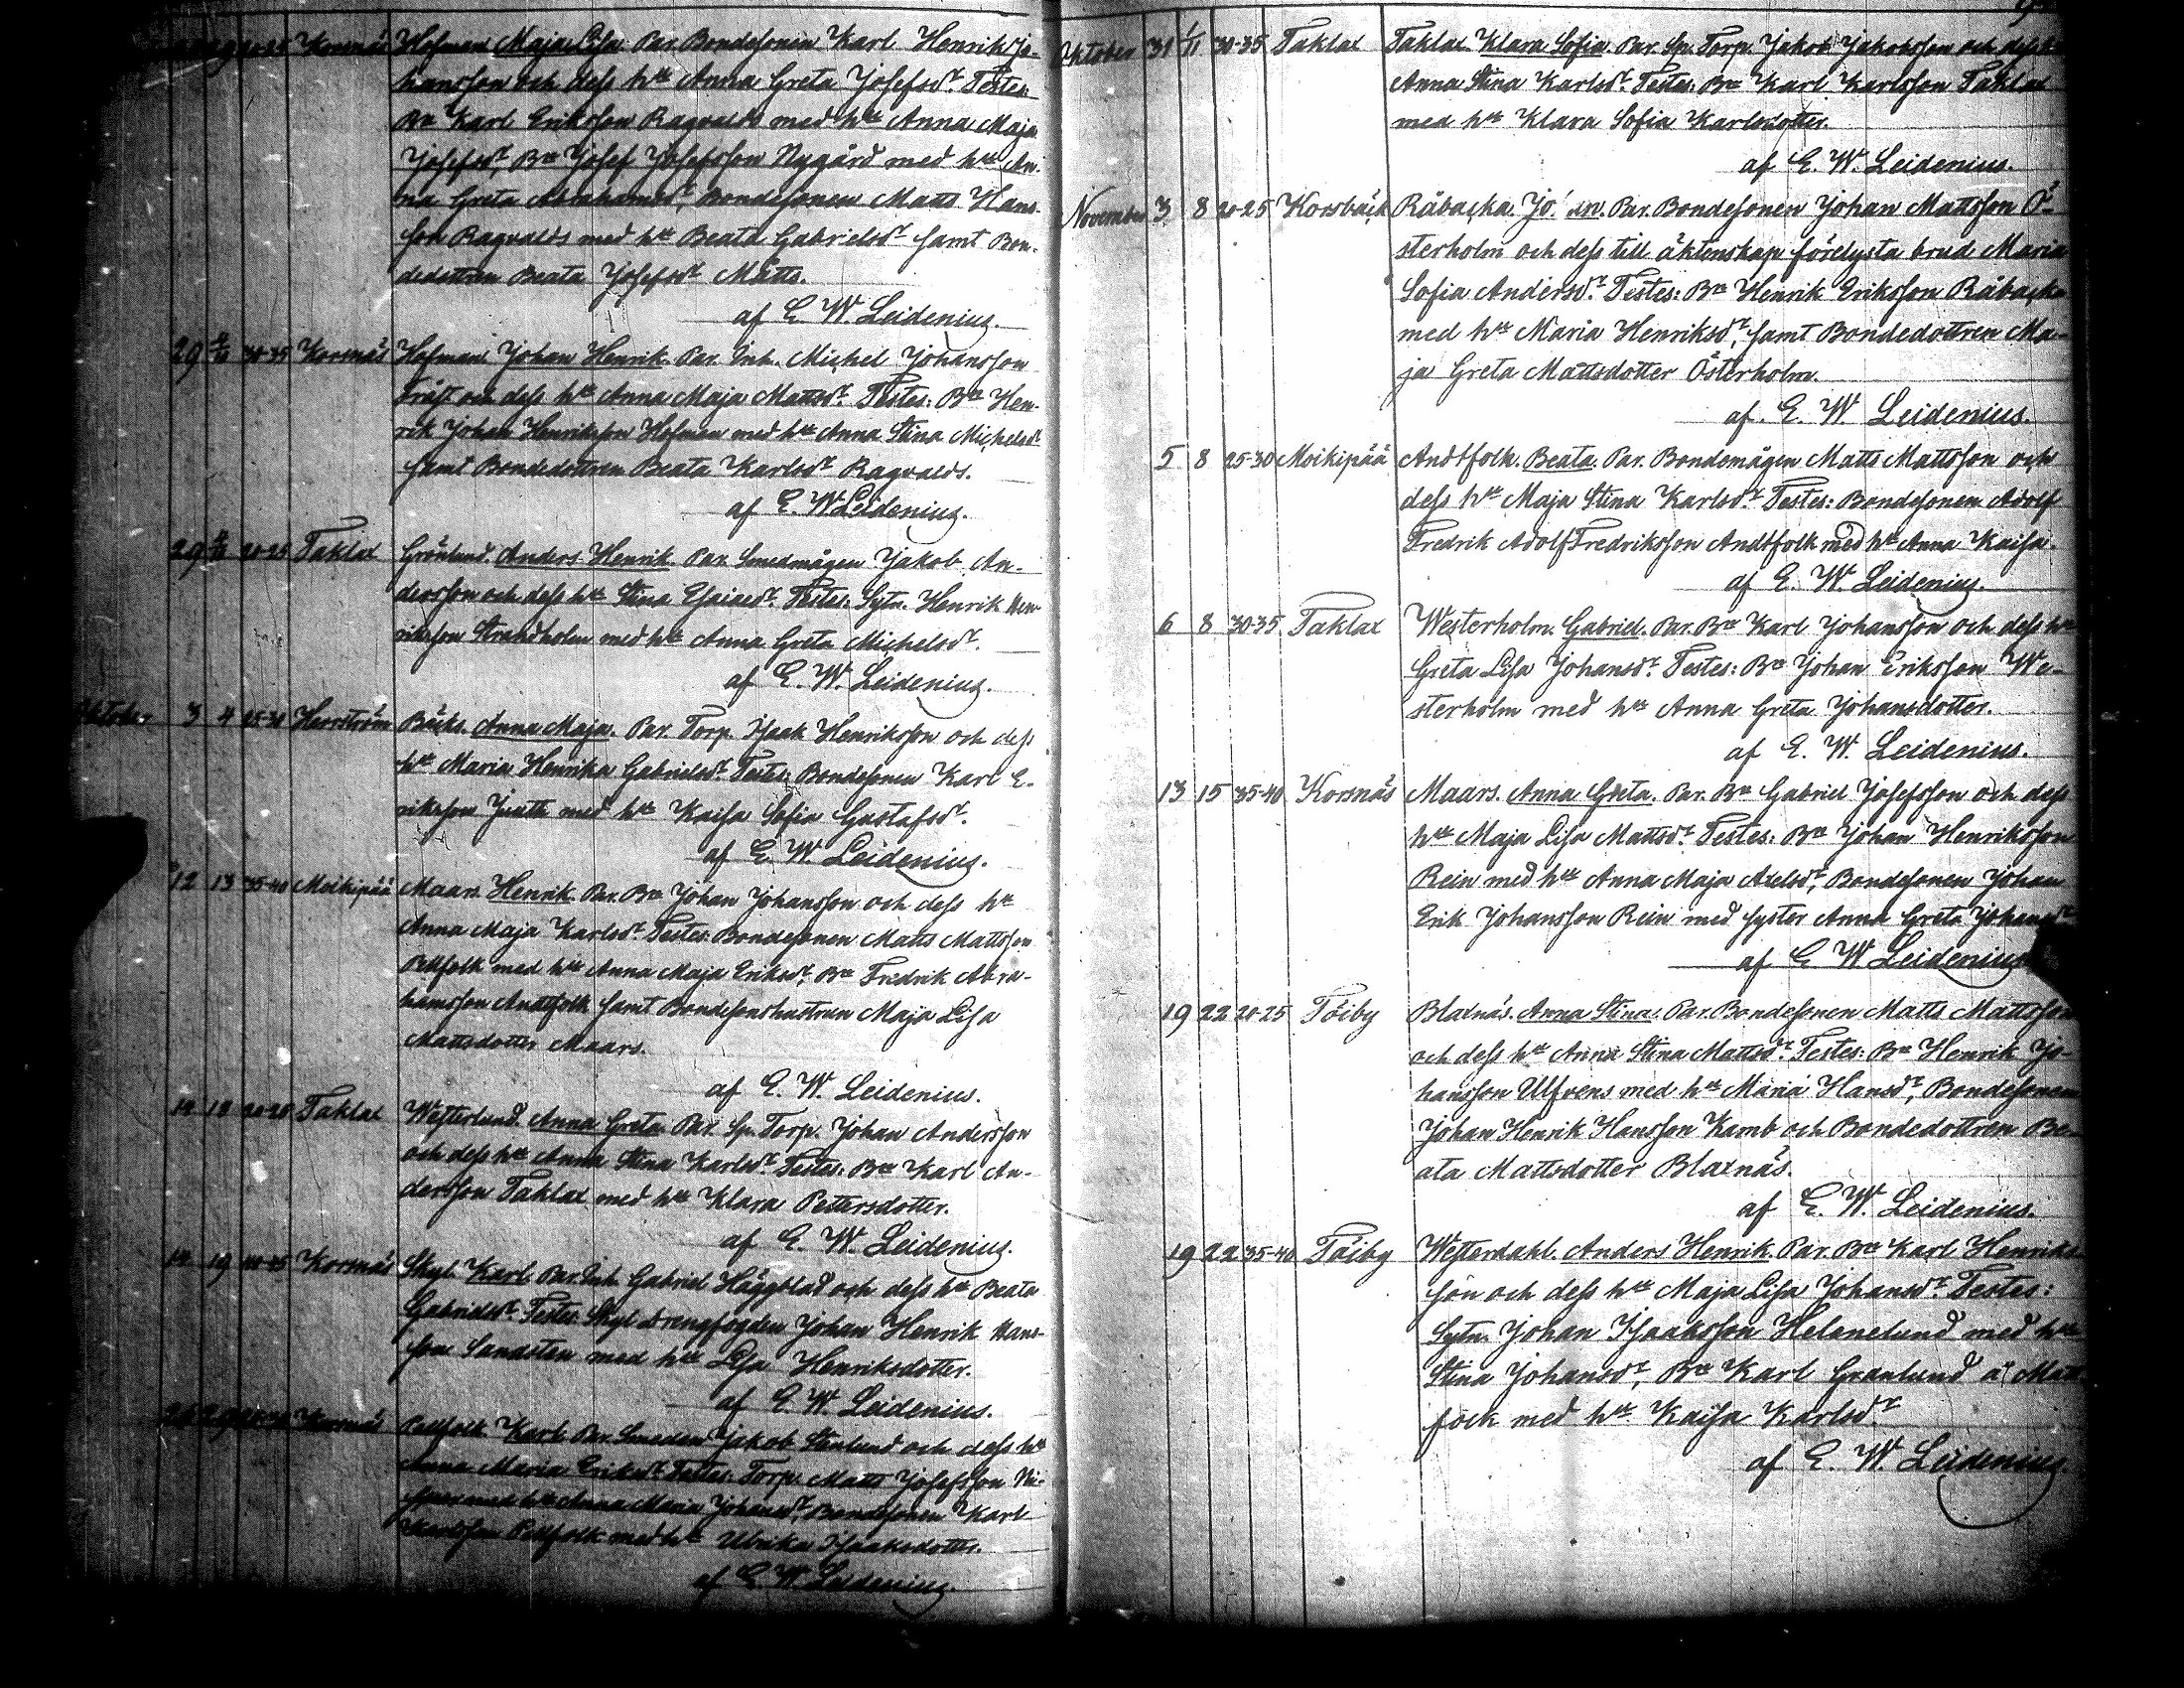 20-25 Korsnäs Hofman Maja Lisa. Par. Bondesonen Karl Henrik Jo-
hansson och dess h:u Anna Greta Josefsd:r Testes
B:n Karl Eriksson Ragvalds med h:u Anna Maja
Josefsd:r, B:n Josef Josefsson Nygård med h:u An-
na Greta Abrahamsd:r, Bondesonen Matts Hans-
son Ragvalds med h:u Beata Gabrielsd:r samt Bon-
dedottren Beata Josefsd:r Matts.
af E. W. Leidenius.
29 30-35 Korsnäs Hofman Johan Henrik. Par. Inh. Michel Johansson
Träft och dess h:u Anna Maja Mattsd:r. Testes: B:n Hen-
rik Johan Henriksson Hofman med h:u Anna Stina Michelsd:r
samt Bondedottren Beata Karlsd:r Ragvalds.
af E. W. Leidenius.
29 20-25 Taklax Grönlund. Anders Henrik. Par. Smedmågen Jakob An-
dersson och dess h:u Stina Esaiasd:r. Testes: Sytn. Henrik Hen-
riksson Strandholm med h:u Anna Greta Michelsd:r.
af E. W. Leidenius.
Oktober 3 4 25-30 Harrström Bäcks. Anna Maja. Par. Torp. Isaak Henriksson och dess
h:u Maria Henrika Gabrielsd:r Testes: Bondesonen Karl E-
riksson Juath med h:u Kaisa Sofia Gustafsd:r.
af E. W. Leidenius.
12 13 35-40 Moikipää Maars. Henrik. Par. B:n Johan Johansson och dess h:u
Anna Maja Karlsd:r. Testes: Bondesonen Matts Mattsson
Pellfolk med h:u Anna Maja Eriksd:r, B:n Fredrik Abra-
hamsson Andtfolk samt Bondesonshustrun Maja Lisa
Mattsdotter Maars.
af E. W. Leidenius.
20-25 Taklax Westerlund. Anna Greta. Par. Sp. Torp. Johan Andersson
och dess h:u Anna Stina Karlsd:r Testes: B:n Karl An-
dersson Taklax med h:u Klara Pettersdotter.
af E. W. Leidenius.
19 Korsnäs Skyt. Karl. Par. Inh. Gabriel Häggblad och dess h:u Beata
Gabrielsd:r. Testes: Drengfogden Johan Henrik Hans-
son Sandsten med h:u Lisa Henriksdotter.
af E. W. Leidenius.
Korsnäs Pellfolk. Karl. Par. Smeden Jakob Stenlund och dess h:u
Anna Maria Eriksd:r Testes: Torp. Matts Josefsson
med h:u Anna Maria Johansd:r, Bondesonen Karl
Karlsson Pellfolk med h:u Ulrika Isaaksdotter.
af E. W. Leidenius.
Oktober 31 1/11 30-35 Taklax Taklax. Klara Sofia. Par. Sp. Torp. Jakob Jakobsson och dess h:u
Anna Stina Karlsd:r. Testes: B:n Karl Karlsson Taklax
med h:u Klara Sofia Karlsdotter.
af E. W. Leidenius.
November 3 8 20-25 Korsbäck Råbacka. Johan. Par. Bondesonen Johan Mattsson Ö-
sterholm och dess till äktenskap förelysta brud Maria
Sofia Andersd:r. Testes: B:n Henrik Eriksson Råbacka
med h:u Maria Henriksd:r, samt Bondedottren Ma-
ja Greta Mattsdotter Österholm.
af. E. W. Leidenius.
5 8 25-30 Moikipää Andtfolk. Beata. Par. Bondemågen Matts Mattsson och
dess h:u Maja Stina Karlsd:r. Testes: Bondesonen Adolf
Fredrik Adolf Fredriksson Andtfolk med h:u Anna Kaisa.
af E. W. Leidenius.
6 8 30-35 Taklax Westerholm. Gabriel. Par. B:n Karl Johansson och dess h:u
Greta Lisa Johansd:r. Testes: B:n Johan Eriksson We-
sterholm med h:u Anna Greta Johansdotter.
af E. W. Leidenius.
13 15 35-40 Korsnäs Maars. Anna Greta. Par. B:n Gabriel Josefsson och dess
h:u Maja Lisa Mattsd:r. Testes: B:n Johan Henriksson
Rein med h:u Anna Maja Axelsd:r, Bondesonen Johan
Erik Johansson Rein med syster Anna Greta Johansd:r
af E. W. Leidenius
19 22 20-25 Töiby Blaxnäs. Anna Stina. Par. Bondesonen Matts Mattsson
och dess h:u Anna Stina Mattsd:r. Testes: B:n Henrik Jo-
hansson Ulfvens med h:u Maria Hansd:r, Bondesonen
Johan Henrik Hansson Kamb och Bondedottren Be-
ata Mattsdotter Blaxnäs.
af E. W. Leidenius.
19 22 35-40 Töiby Westerdahl. Anders Henrik. Par. B:n Karl Henriks-
son och dess h:u Maja Lisa Johansd:r. Testes:
Sytn. Johan Isaaksson Helenelund med h:u
Stina Johansd:r, B:n Karl Granlund a
fock med h:u Kaisa Karlsd:r
af E. W. Leidenius.